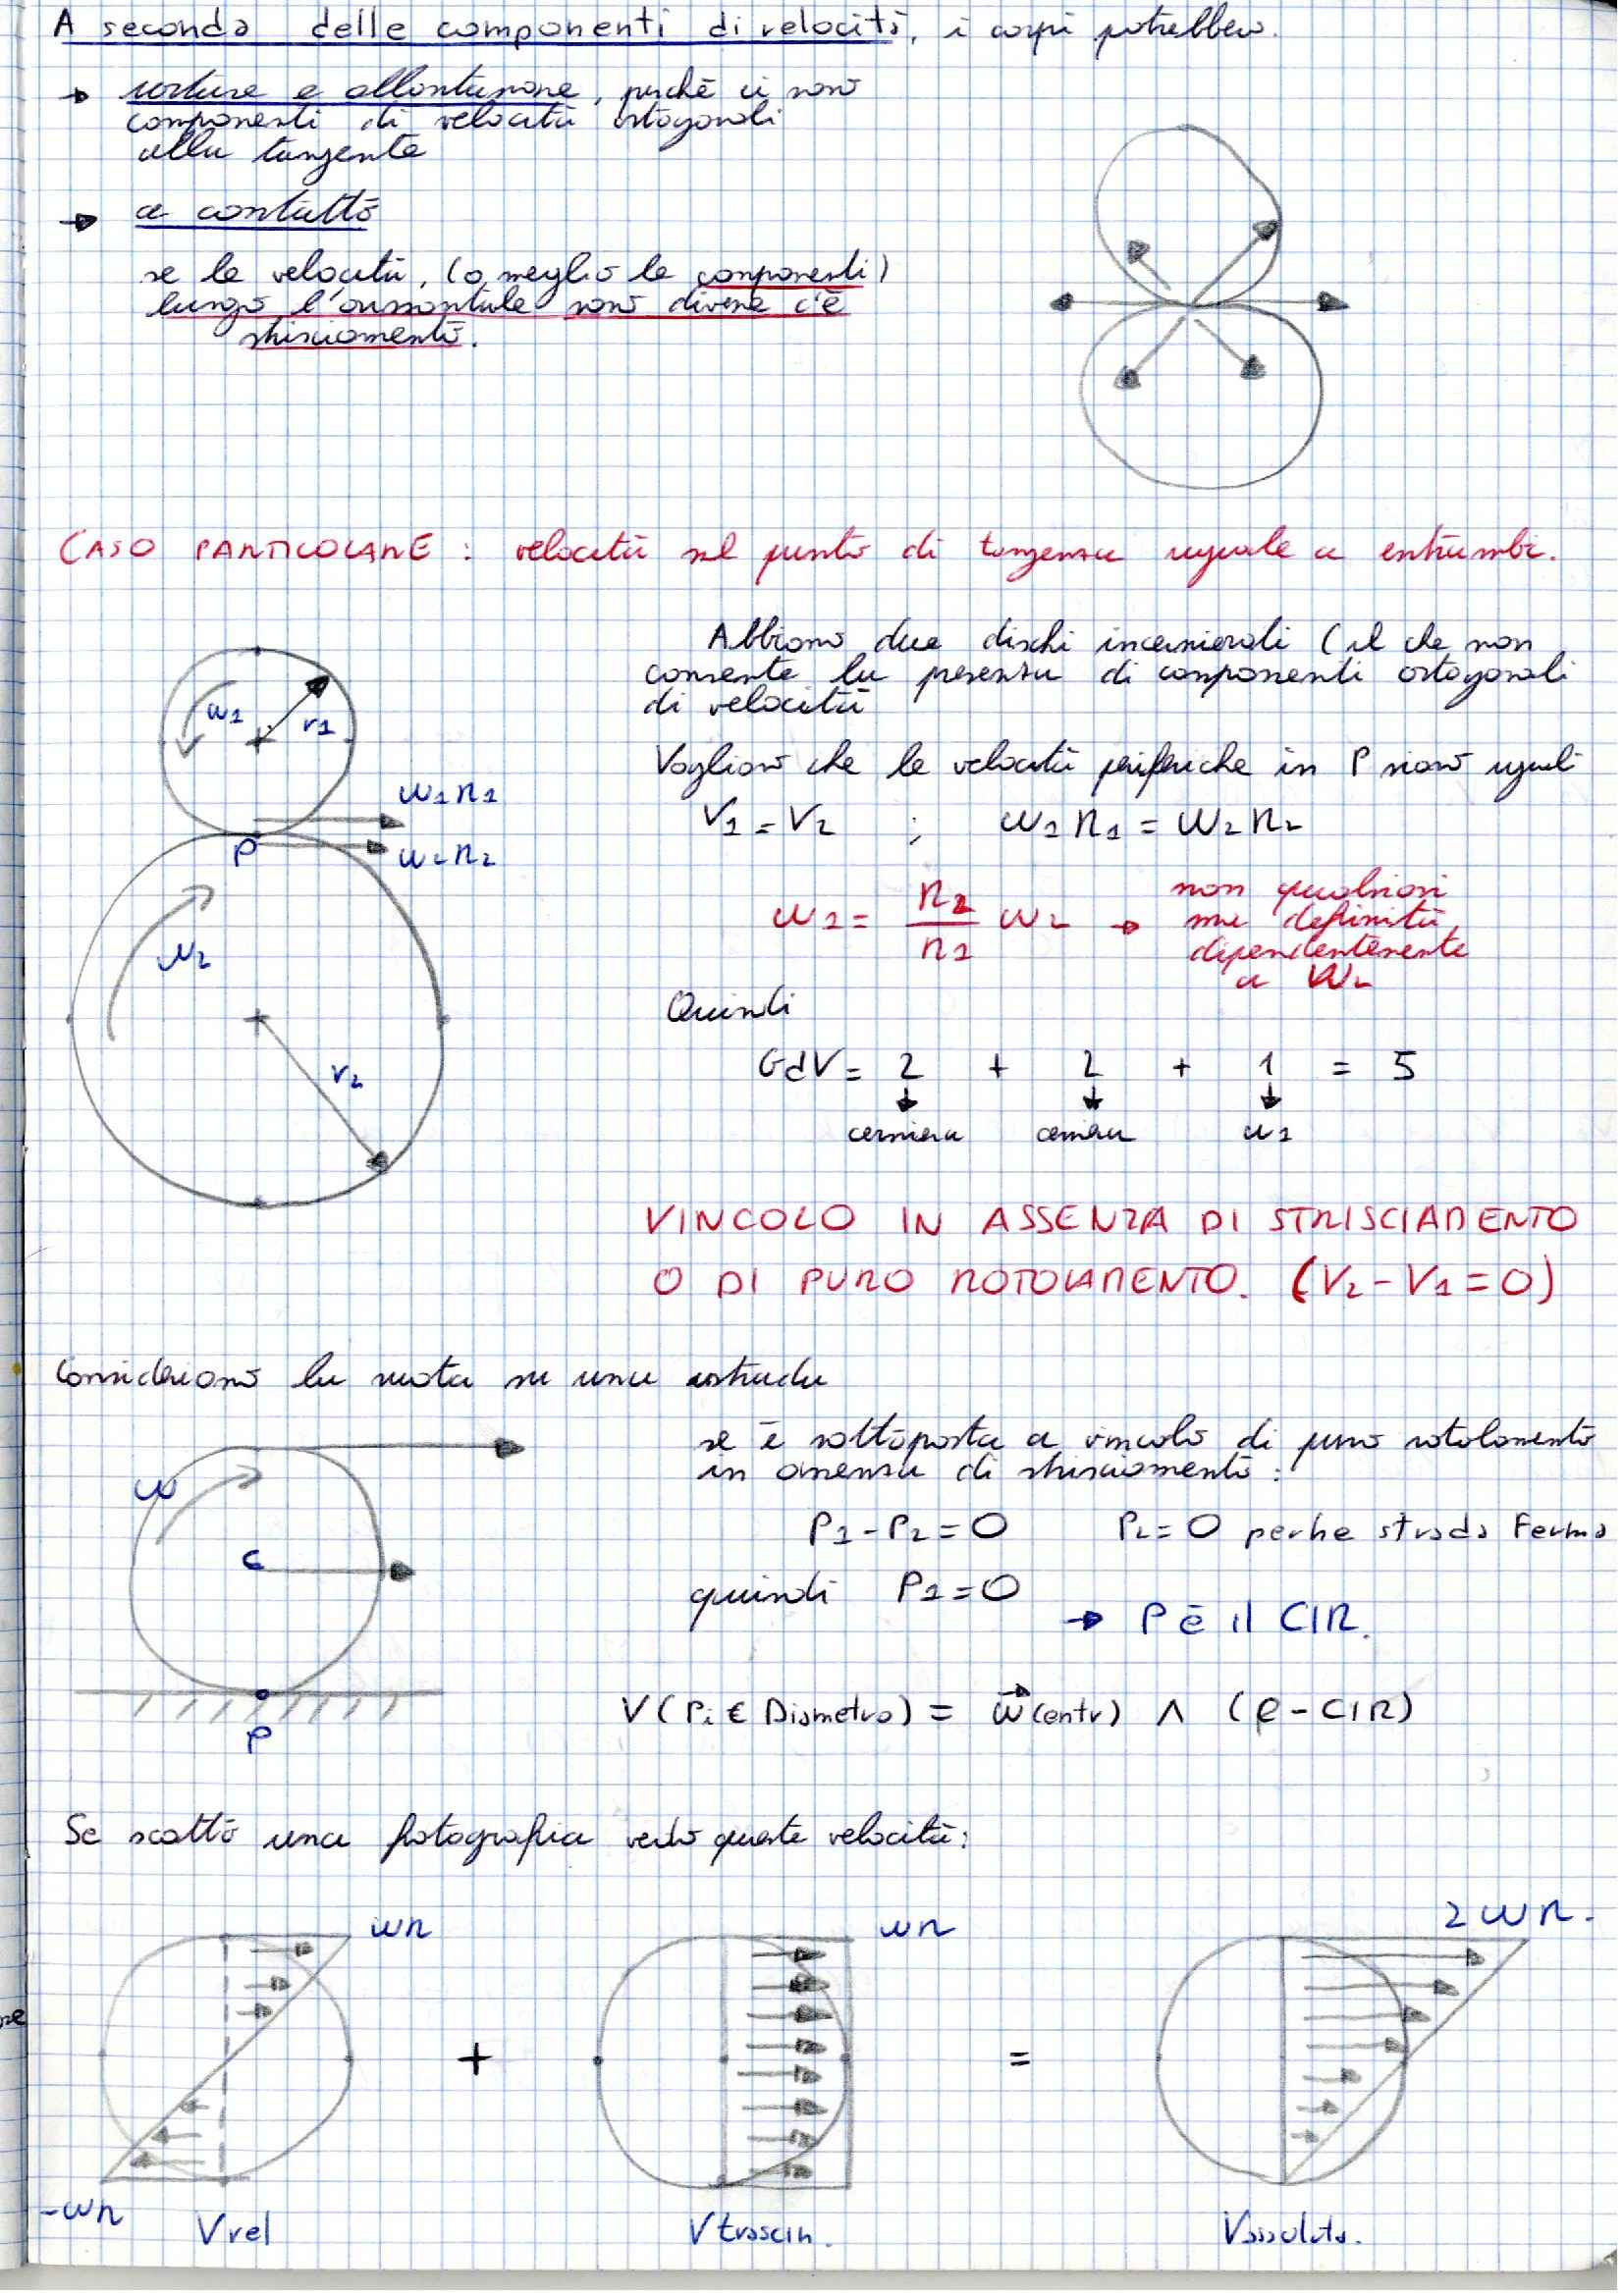 A seconda delle componenti di velocità, i corpi potrebbero.
→ urtare e allontanarsi, perchè ci sono
componenti di velocità ortogonali
alla tangente
→ a contatto
se le velocità, (o meglio le componenti)
lungo l'orizzontale sono diverse c'è
strisciamento.
CASO PARTICOLARE : velocità nel punto di tangenza uguale a entrambi.
Abbiamo due dischi incernierati (il che non
consente la presenza di componenti ortogonali
di velocità
Vogliamo che le velocità periferiche in P siano uguali
V1 = V2 ; ω1 r1 = ω2 r2
ω1 r1
r1
ω1
P
ω2 r2
ω2
r2
ω1 = r2/r1 ω2 → non qualsiasi
ma definita
dipendentemente
a ω2
Quindi
GdV = 2 + 2 + 1 = 5
cerniera cerniera ω1
VINCOLO IN ASSENZA DI STRISCIAMENTO
O DI PURO ROTOLAMENTO. (V2 - V1 = 0)
Consideriamo la ruota su una strada
se è sottoposta a vincolo di puro rotolamento
in assenza di strisciamento :
ω
C
P
P1 - P2 = 0 P2 = 0 perhe strada Ferma
quindi P1 = 0
→ P è il CIR.
V (Pi € Diametro) = ω⃗ (entr) ∧ (P - CIR)
Se scatto una fotografia vedo queste velocità:
ωr ωr 2 ωr.
+ =
-ωr Vrel Vtrascin. Vassoluta.